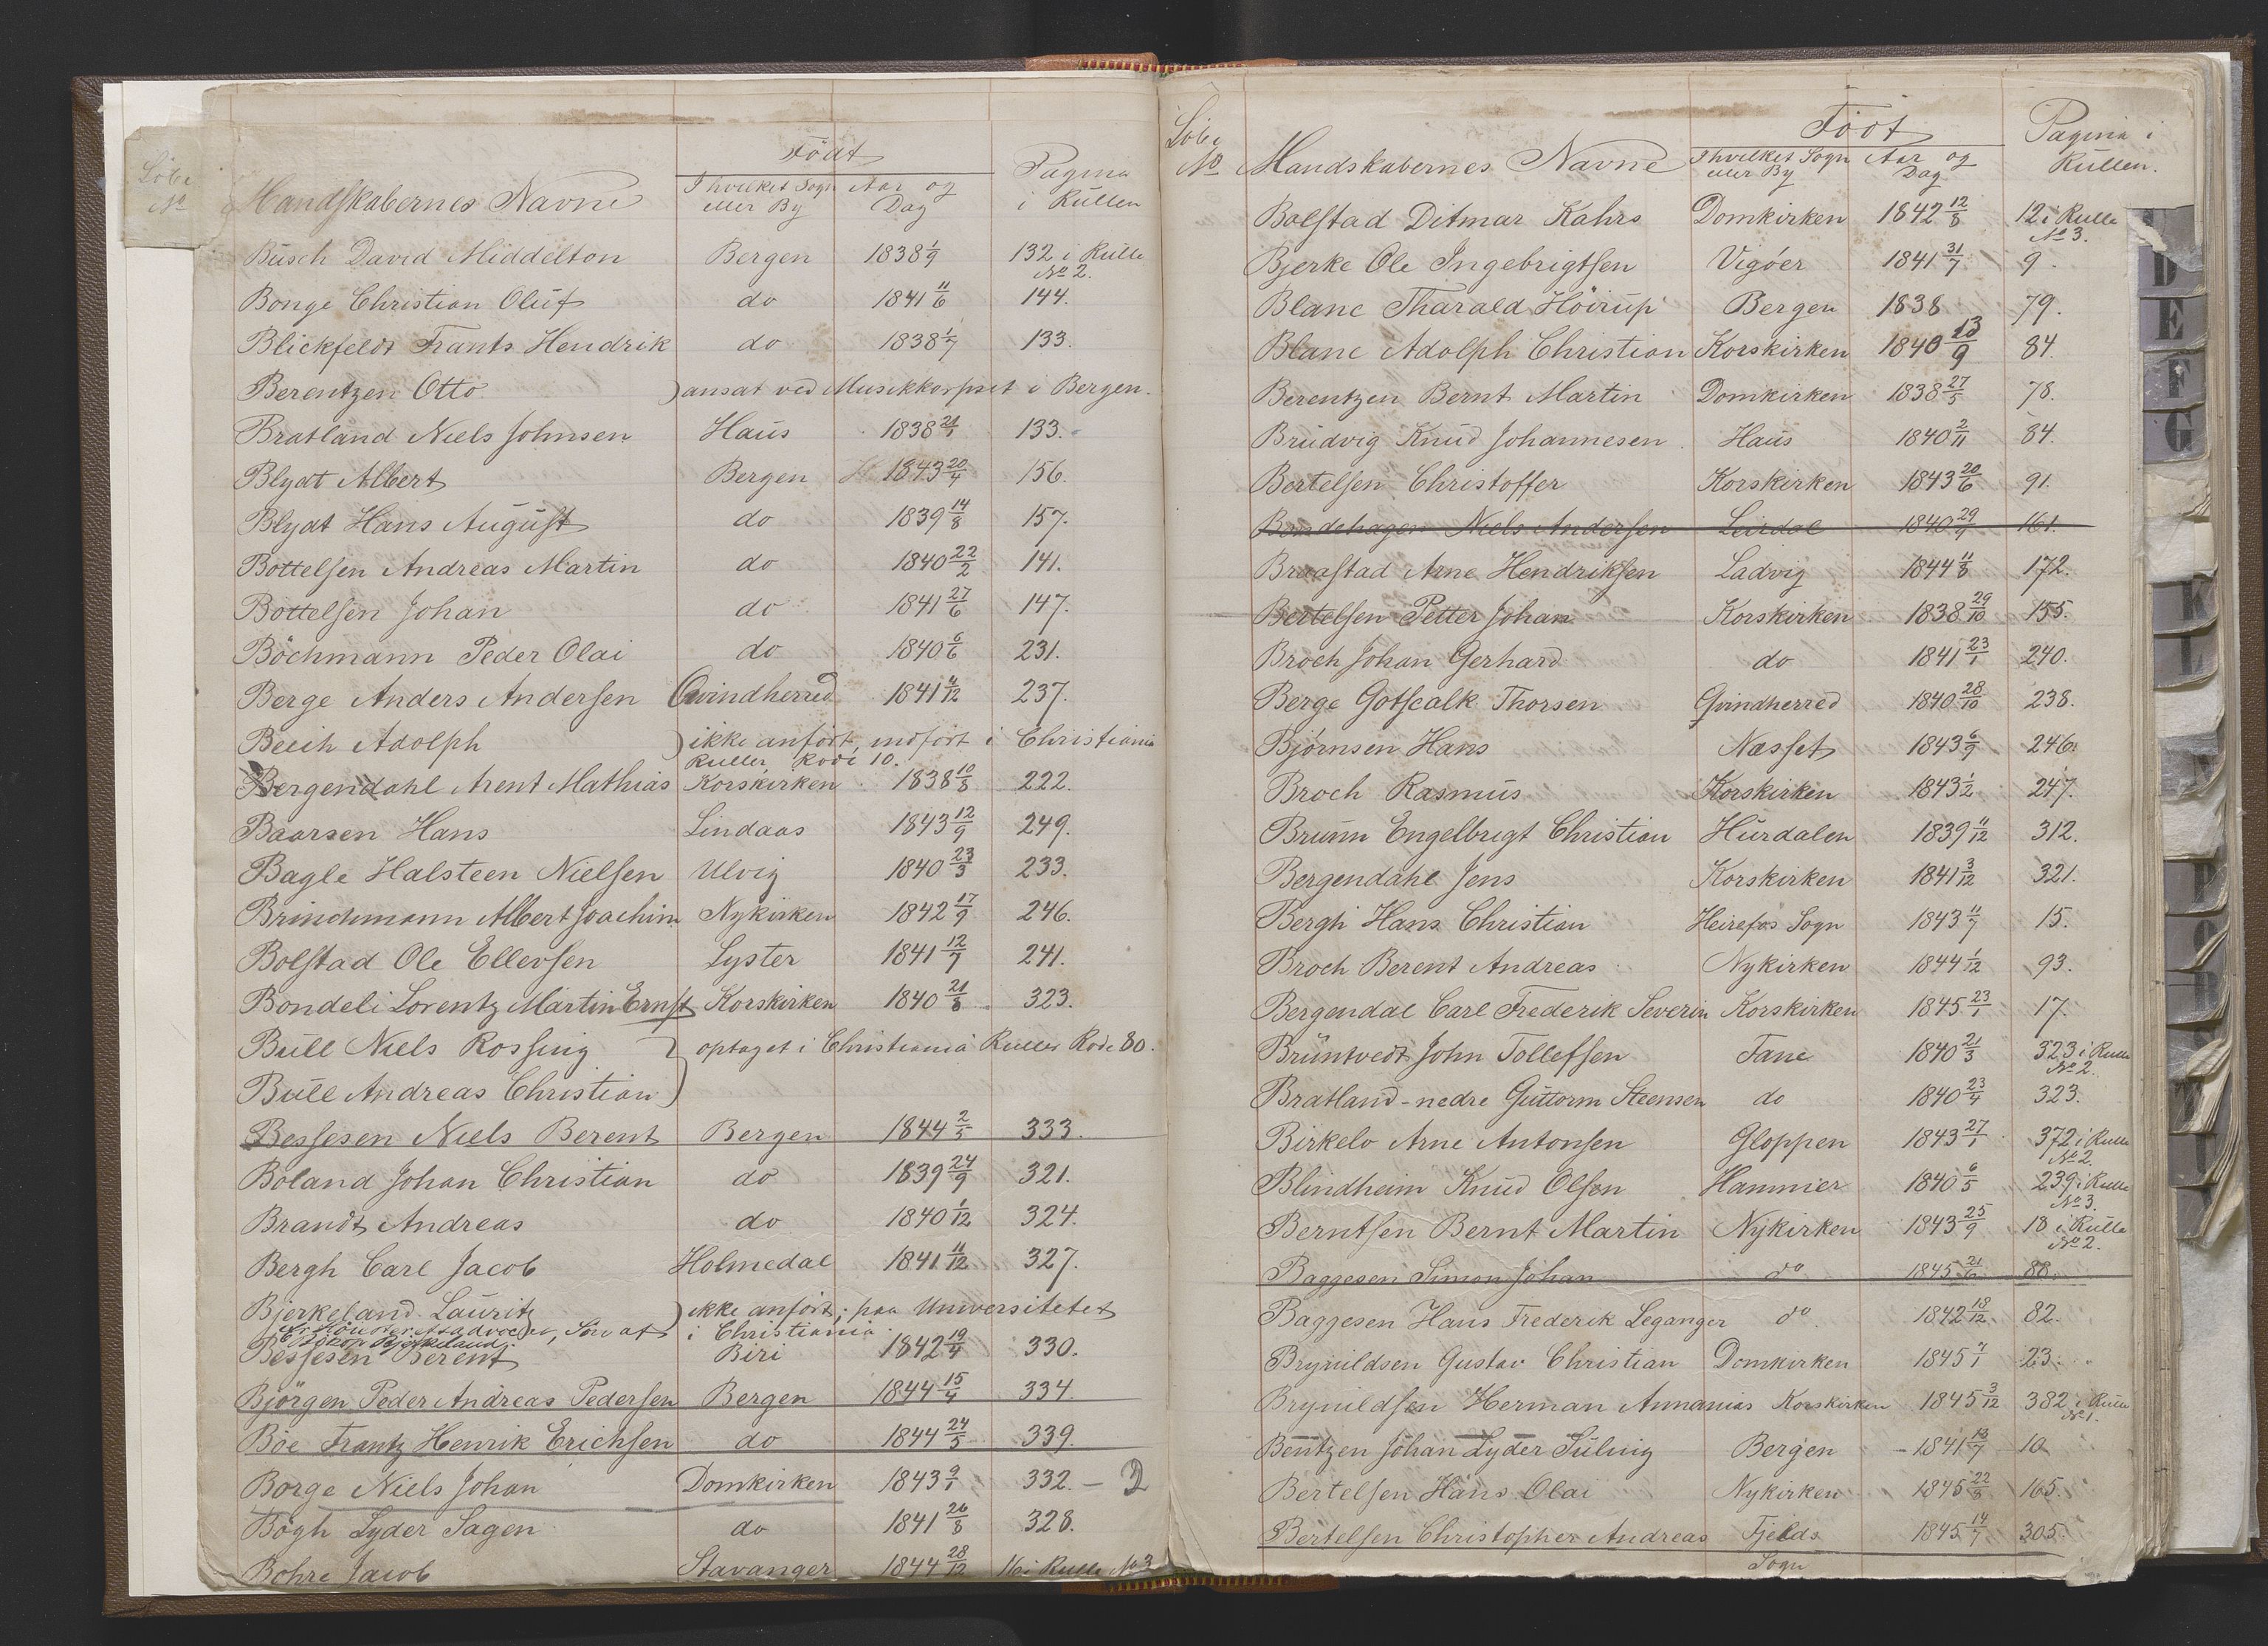 Løbe No
Mandskabernes Navne
Födt
I hvilket Sogn eller By
Aar og Dag
Pagina i Rullen
Busch David Middelton Bergen 1838 1/9 132 i Rulle No 2.
Bonge Christian Oluf do 1841 11/6 144.
Blickfeldt Frants Hendrik do 1838 1/7 133.
Berentzen Otto ) ansat ved Musikkorpset i Bergen.
Bratland Niels Johnsen Haus 1838 21/1 133.
Blydt Albert Bergen 1843 20/4 156.
Blydt Hans August do 1839 14/8 157.
Bottelsen Andreas Martin do 1840 22/2 141.
Bottelsen Johan do 1841 27/6 147.
Böchmann Peder Olai do 1840 6/6 231.
Berge Anders Andersen Qvindherred 1841 11/12 237.
Beich Adolph ) ikke anført, indført i Christiania
Ruller Rode 10.
Bergendahl Arent Mathias Korskirken 1838 10/8 222.
Baarsen Hans Lindaas 1843 12/9 249.
Bagle Halsteen Nielsen Ulvig 1840 23/3 233.
Brinchmann Albert Joachim Nykirken 1842 17/9 246.
Bolstad Ole Ellevsen Lyster 1841 12/7 241.
Bondeli Lorentz Martin Ernst Korskirken 1840 21/8 323.
Bull Niels Rossing } optaget i Christiania Ruller Rode 80.
Bull Andreas Christian
Bessesen Niels Berent Bergen 1844 2/5 333.
Boland Johan Christian do 1839 24/9 321.
Brandt Andreas do 1840 1/12 324.
Bergh Carl Jacob Holmedal 1841 11/12 327.
Bjerkeland Lauritz ) ikke anført; paa Universitetet
i Christiania
Bessesen Berent Biri 1842 19/4 330.
Björgen Peder Andreas Pedersen Bergen 1844 15/4 334.
Böe Frantz Henrik Erichsen do 1844 24/5 339.
Borge Niels Johan Domkirken 1843 9/1 332. –
Bögh Lyder Sagen do 1841 26/8 328.
Bohre Jacob Stavanger 1844 28/12 16 i Rulle No 3
Løbe No
Mandskabernes Navne
Födt
I hvilket Sogn eller By
Aar og Dag
Pagina i Rullen.
Bolstad Ditmar Kahrs Domkirken 1842 12/8 12 i Rulle No 3.
Bjerke Ole Ingebrigtsen Vigöer 1841 31/7 9.
Blanc Tharald Höirup Bergen 1838 79.
Blanc Adolph Christian Korskirken 1840 13/9 84.
Berentzen Bernt Martin Domkirken 1838 27/5 78.
Brudvig Knud Johannesen Haus 1840 2/11 84.
Bertelsen Christoffer Korskirken 1843 20/6 91.
Niels Andersen Leirdal 1840 29/9 161.
Arne Hendriksen Ladvig 1844 11/8 172.
Bertelsen Petter Johan Korskirken 1838 29/10 155.
Broch Johan Gerhard do 1841 23/1 240.
Berge Gotscalk Thorsen Qvindherred 1840 28/10 238.
Bjørnsen Hans Næsset 1843 6/9 246.
Broch Rasmus Korskirken 1843 1/2 247.
Brunn Engelbregt Christian Hurdalen 1839 11/12 312.
Bergendahl Jens Korskirken 1841 3/12 321.
Bergh Hans Christian Heirefos Sogn 1843 11/7 15.
Broch Berent Andreas Nykirken 1844 1/12 93.
Bergendal Carl Frederik Severin Korskirken 1845 23/1 17.
Bruntvedt John Tollefsen Fane 1840 21/3 323 i Rulle No 2.
Bratland-nedre Guttorm Steensen do 1840 23/4 323.
Birkelo Arne Antonsen Gloppen 1843 27/1 372 i Rulle No 2.
Blindheim Knud Olsen Hammer 1840 6/5 239 i Rulle No 3.
Berntsen Bernt Martin Nykirken 1843 25/9 18 i Rulle No 2.
Baggesen Simon Johan do 1845 21/6 88.
Baggesen Hans Frederik Leganger do 1842 18/12 82.
Brynildsen Gustav Christian Domkirken 1845 7/1 23.
Brynildsen Herman Annanias Korskirken 1845 3/12 382 i Rulle No 1.
Bentzen Johan Lyder Süling Bergen - 1841 13/7 10
Bertelsen Hans Olai Nykirken 1845 22/8 165.
Bertelsen Christopher Andreas Fjelds Sogn 1845 14/7 305.
D
E
F
G
K
L